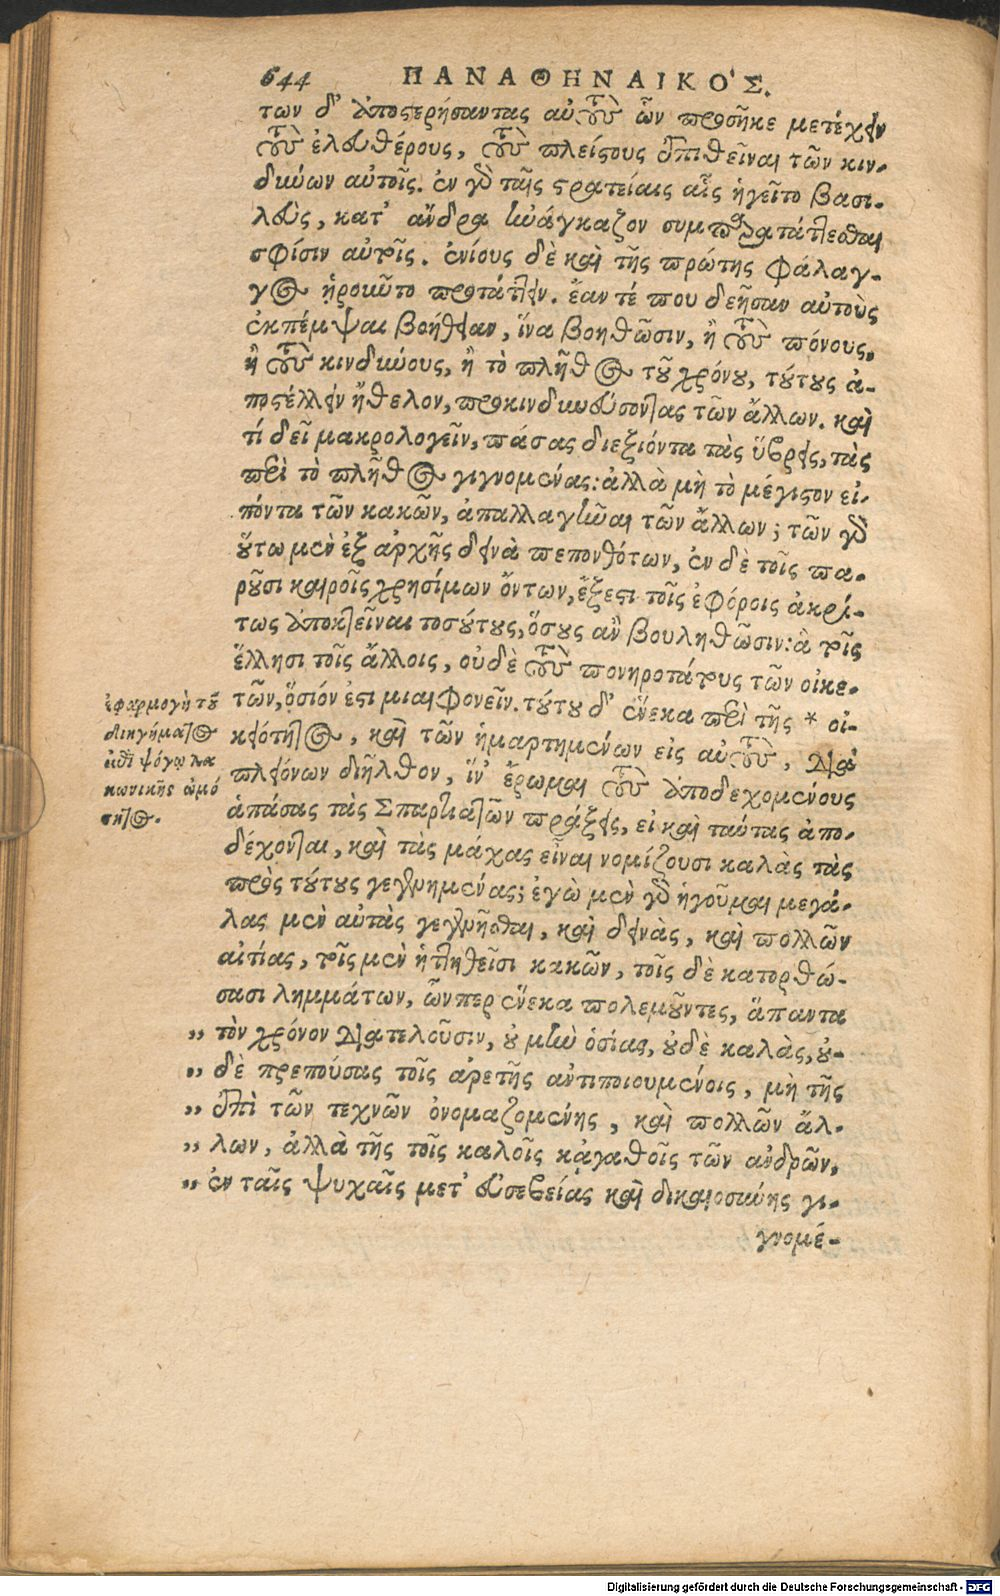 644 ΠΑΝΑΘΗΝΑΙΚΟ΄Σ.
των δ' ἀποστερήσαντας αὐτοὺς ὧν προσῆκε μετέχειν
τοὺς ἐλευθέρους, τοὺς πλείστους ἐπιθεῖναι τῶν κιν-
δύνων αὐτοῖς. ἐν γὰρ ταῖς στρατείαις αἷς ἡγεῖτο βασι-
λεὺς, κατ' ἄνδρα ἠνάγκαζον συμπαρατάττεσθαι
σφίσιν αὐτοῖς. ἐνίους δὲ καὶ τῆς πρώτης φάλαγ-
γος ἠροῦντο προτάττειν. ἔαν τέ που δεῆσαν αὐτοὺς
ἐκπέμψαι βοήθειαν, ἵνα βοηθῶσιν, ἢ τοὺς πόνους,
ἢ τοὺς κινδύνους, ἢ τὸ πλῆθος τοῦ χρόνου, τούτους ἀ-
ποστέλλειν ἤθελον, προκινδυνεύσοντας τῶν ἄλλων. καὶ
τί δεῖ μακρολογεῖν, πάσας διεξιόντα τὰς ὕβρεις, τὰς
περὶ τὸ πλῆθος γιγνομένας: ἀλλὰ μὴ τὸ μέγιστον εἰ-
πόντα τῶν κακῶν, ἀπαλλαγῆναι τῶν ἄλλων; τῶν γὰρ
οὕτω μὲν ἐξ ἀρχῆς δεινὰ πεπονθότων, ἐν δὲ τοῖς πα-
ροῦσι καιροῖς χρησίμων ὄντων, ἔξεστι τοῖς ἐφόροις ἀκρί-
τως ἀποκτεῖναι τοσούτους, ὅσους ἂν βουληθῶσιν: ἃ τοῖς
ἕλλησι τοῖς ἄλλοις, οὐδὲ τοὺς πονηροτάτους τῶν οἰκε-
τῶν, ὅσιόν ἐστι μιαιφονεῖν. τούτου δ' ἕνεκα περὶ τῆς * οἰ-
κειότητος, καὶ τῶν ἡμαρτημένων εἰς αὐτοὺς, διὰ
πλειόνων διῆλθον, ἵν' ἔρωμαι τοὺς ἀποδεχομένους
ἁπάσας τὰς Σπαρτιατῶν πράξεις, εἰ καὶ ταύτας ἀπο-
δέχονται, καὶ τὰς μάχας εἶναι νομίζουσι καλὰς τὰς
πρὸς τούτους γεγενημένας; ἐγὼ μὲν γὰρ ἡγοῦμαι μεγά-
λας μὲν αὐτὰς γεγενῆσθαι, καὶ δεινὰς, καὶ πολλῶν
αἰτίας, τοῖς μὲν ἡττηθεῖσι κακῶν, τοῖς δὲ κατορθώ-
σασι λημμάτων, ὧνπερ ἕνεκα πολεμοῦντες, ἅπαντα
„ τὸν χρόνον διατελοῦσιν, οὐ μὴν ὁσίας, οὐδὲ καλὰς, οὐ-
„ δὲ πρεπούσας τοῖς ἀρετῆς ἀντιποιουμένοις, μὴ τῆς
„ ἐπὶ τῶν τεχνῶν ὀνομαζομένης, καὶ πολλῶν ἄλ-
„ λων, ἀλλὰ τῆς τοῖς καλοῖς κἀγαθοῖς τῶν ἀνδρῶν,
„ ἐν ταῖς ψυχαῖς μετ' εὐσεβείας καὶ δικαιοσύνης γι-
γνομέ-
ἐφαρμογὴ τοῦ
διηγήματος
ψόγῳ λα
κωνικῆς ὠμό
τητος.
Digitalisierung gefördert durch die Deutsche Forschungsgemeinschaft - DFG